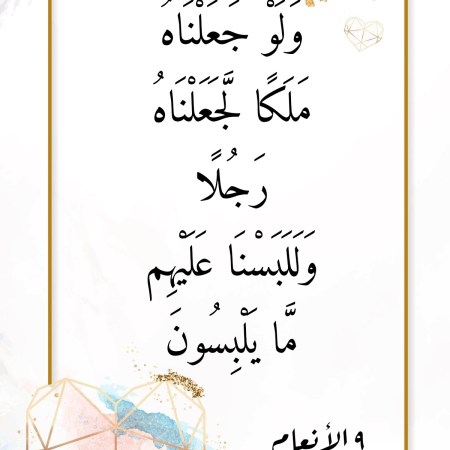 وَلَوْ جَعَلْنَاهُ
مَلَكًا لَّجَعَلْنَاهُ
رَجُلًا
وَلَلَبَسْنَا عَلَيْهِم
مَّا يَلْبِسُونَ
٩ الأنعام